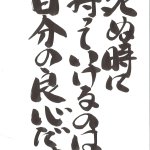 死ぬ時に
持っていけるのは
自分の良心だ